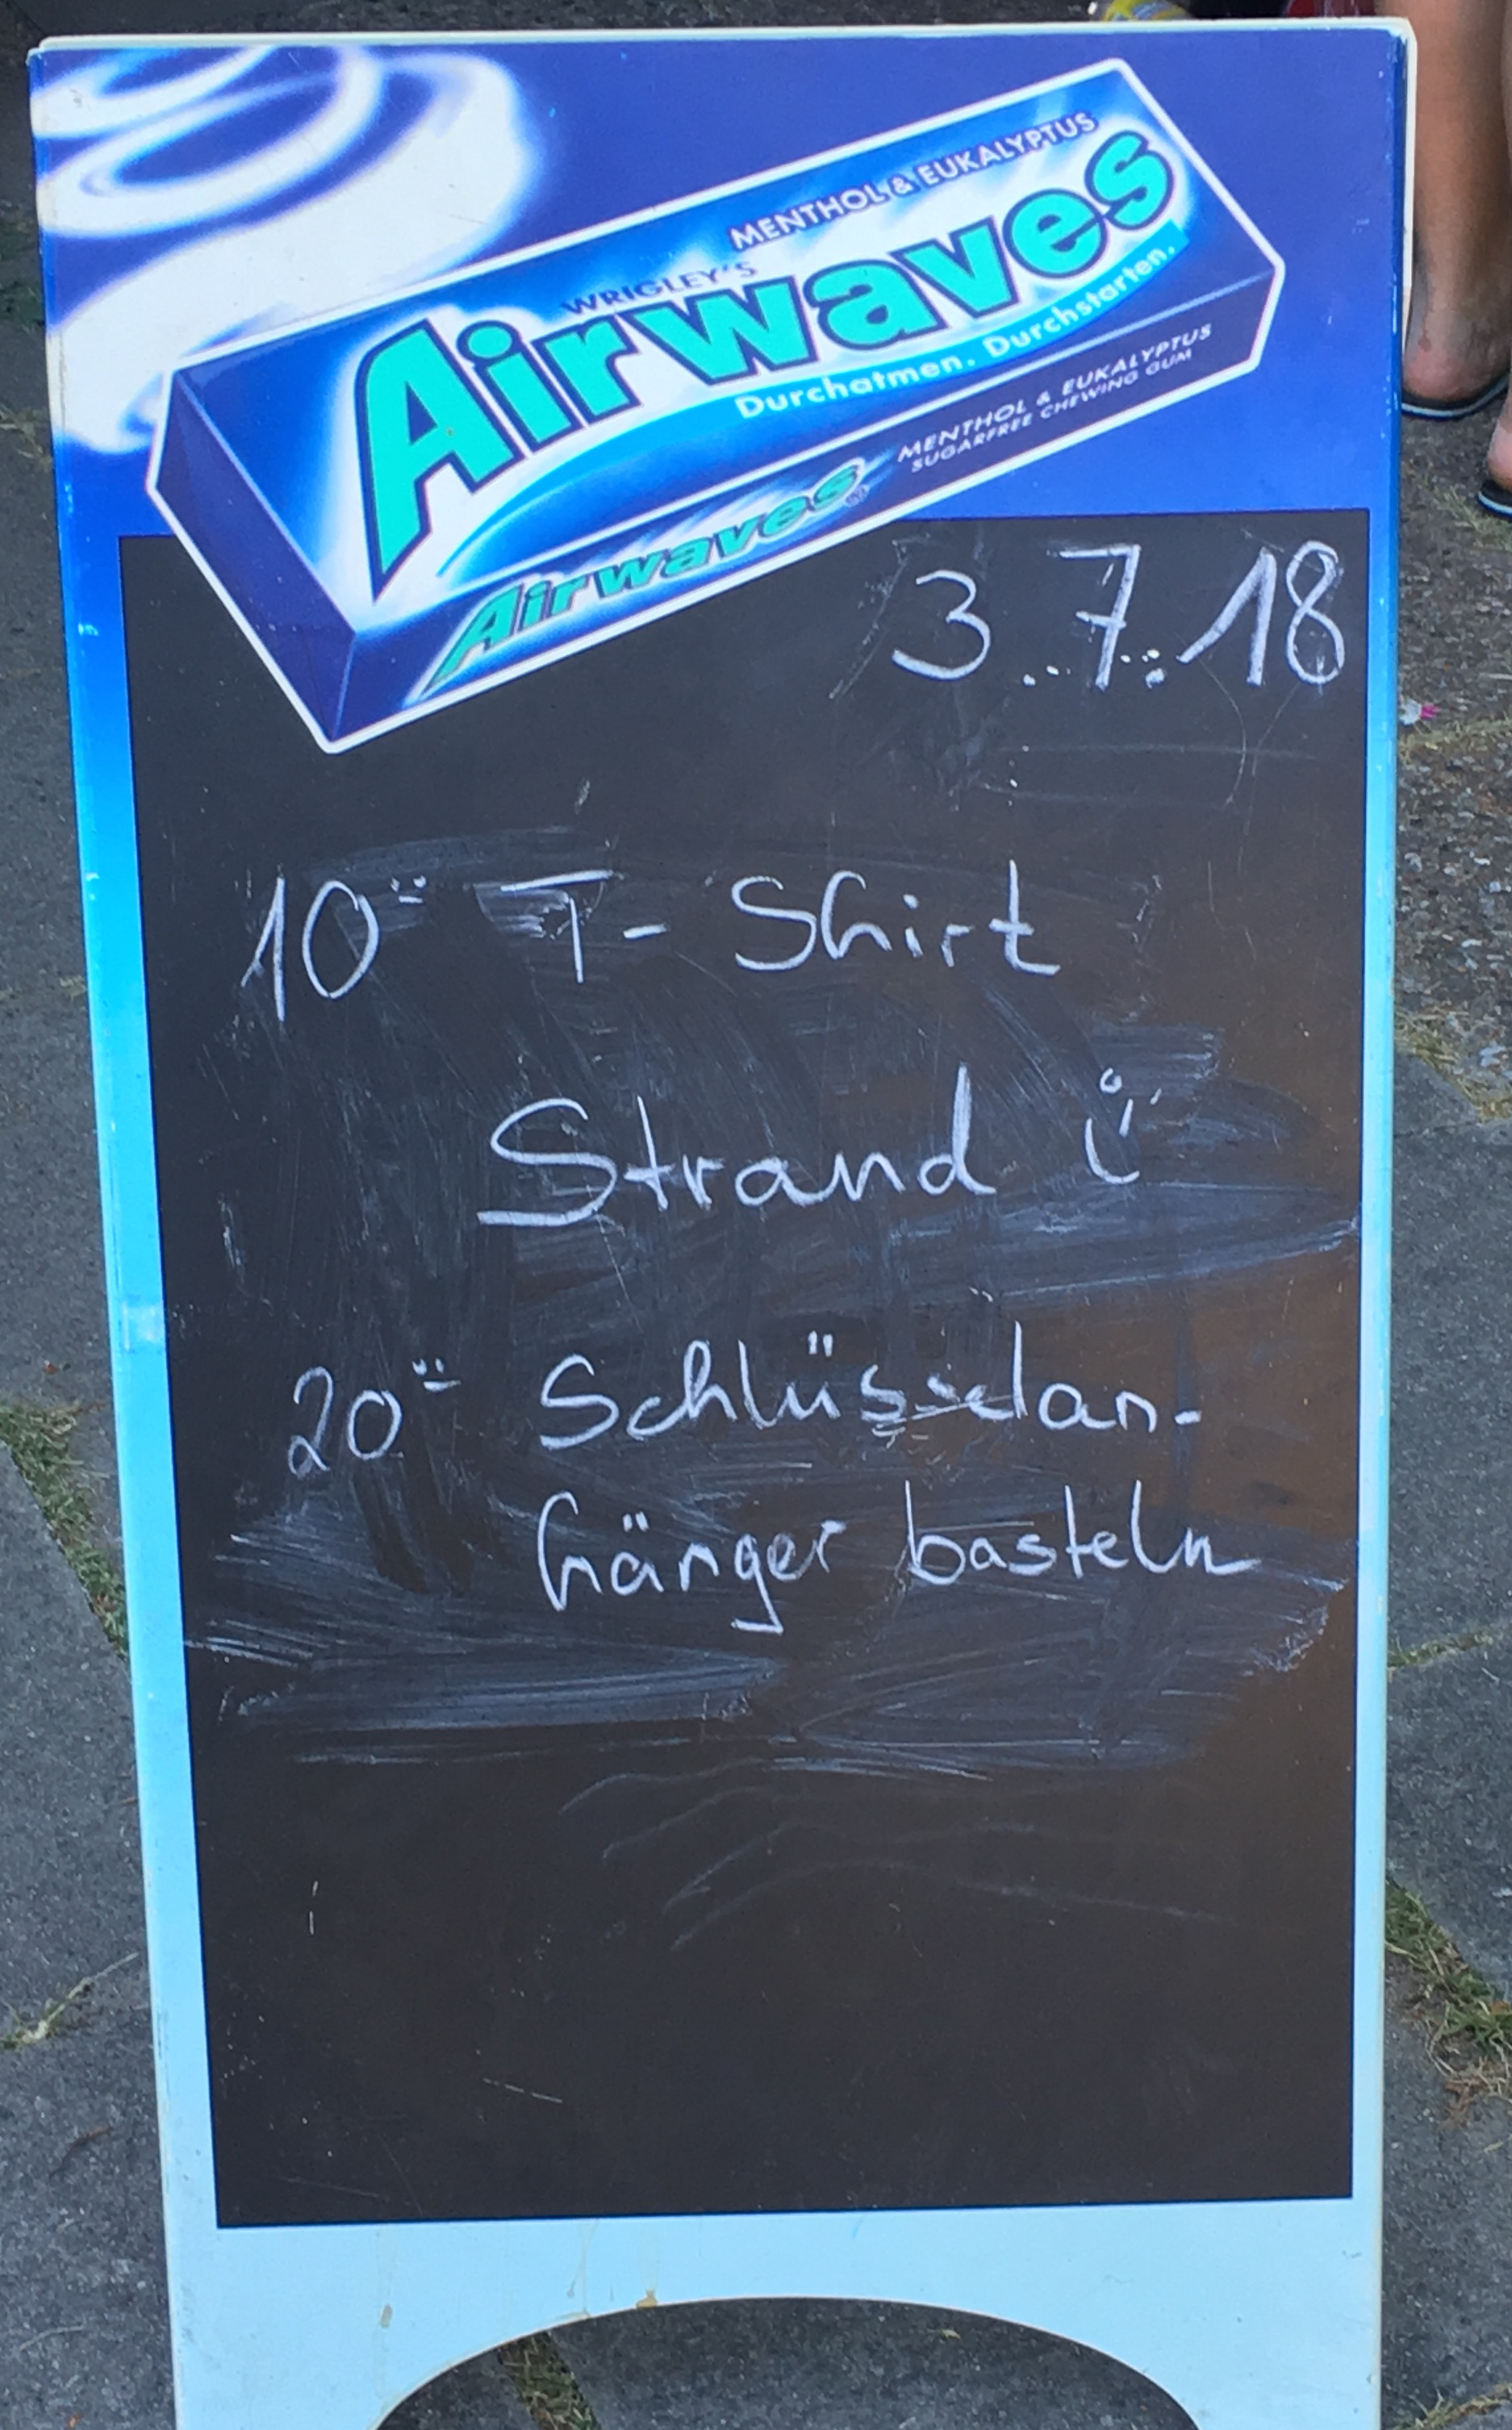 MENTHOL & EUKALYPTUS
WRIGLEY'S
Airwaves
Durchatmen. Durchstarten.
Airwaves®
MENTHOL & EUKALYPTUS
SUGARFREE CHEWING GUM
3.7.18
10 T-Shirt
Strand
20 Schlüsselan-
hänger basteln